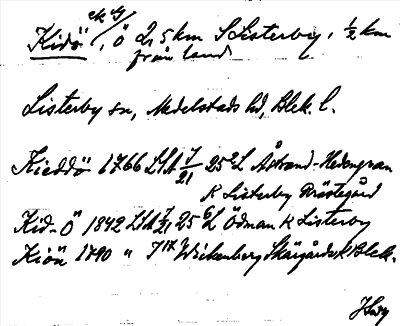 Kidö, ö 2,5 km S Listerby, ½ km
från land
Listerby sn, Medelstads hd, Blek. l.
Kieddö 1766 LSA J/21 25²L Åstrand-Hedengran
K Listerby Prästegård
Kid-Ö 1842 LSA J/21 25⁶L Ödman K Listerby
Kiön 1790 " J¹⁷ Wickenberg Skärgårds K Blek.